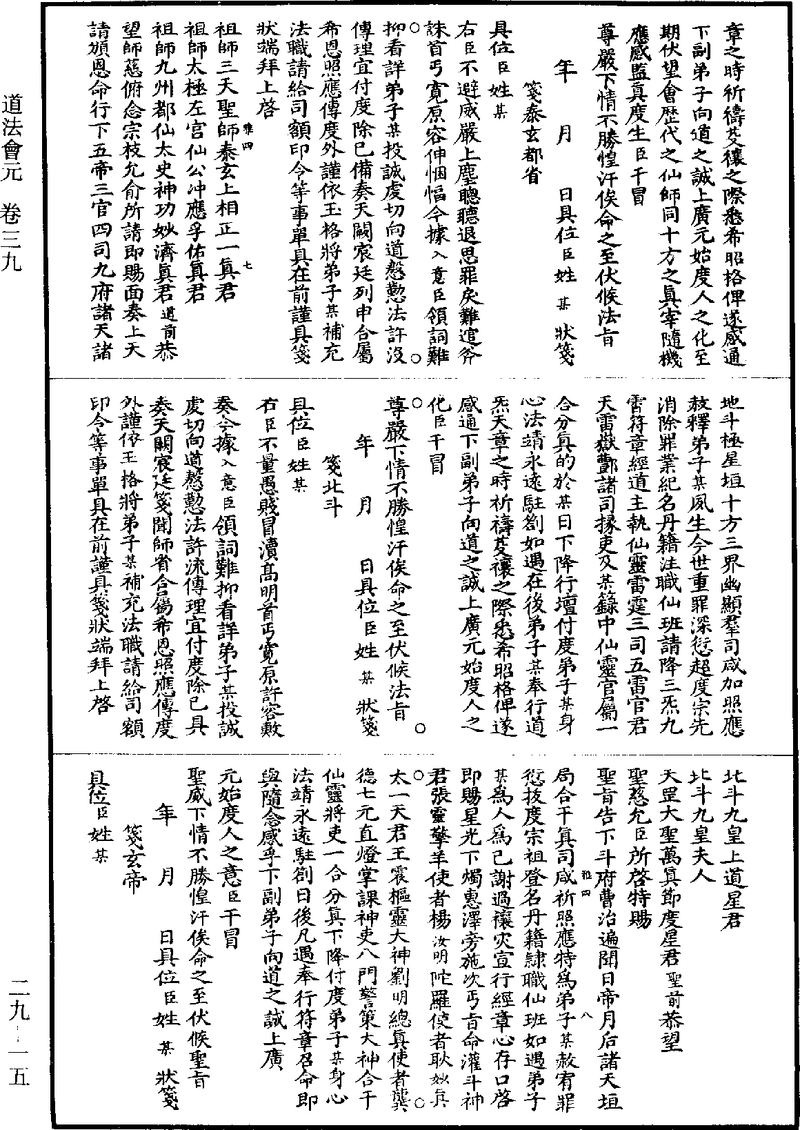 道法會元　卷三九
章之時祈禱芟禳之際悉希昭格俾遂感通
下副弟子向道之誠上廣元始度人之化至
期伏望會歷代之仙師同十方之真宰隨機
應感監真度生臣干冒
尊嚴下情不勝惶汗俟命之至伏候法旨
年　月　日具位臣姓某狀箋
箋泰玄都省
具位臣姓某
右臣不避威嚴上塵聰聽退思罪戾難逭斧
誅首丐寬原容伸悃愊今據入意臣領詞難
抑看詳弟子某投誠虔切向道慇懃法許沒
傳理宜付度除已備奏天闕宸廷列申合屬
希恩照應傳度外謹依玉格將弟子某補充
法職請給司額印令等事單具在前謹具箋
狀端拜上啓
祖師三天聖師泰玄上相正一真君
雅四　七
祖師太極左宮仙公冲應孚佑真君
祖師九州都仙太史神功妙濟真君道前恭
望師慈俯念宗枝允俞所請即賜面奏上天
請頒恩命行下五帝三官四司九府諸天諸
地斗極星垣十方三界幽顯羣司咸加照應
赦釋弟子某夙生今世重罪深愆超度宗先
消除罪業紀名丹籍注職仙班請降三炁九
霄符章經道主執仙靈雷霆三司五雷官君
天雷嶽酆諸司掾吏及某籙中仙靈官屬一
合分真的於某日下降行壇付度弟子某身
心法靖永遠駐劄如遇在後弟子某奉行道
炁天章之時祈禱芟禳之際悉希昭格俾遂
感通下副弟子向道之誠上廣元始度人之
化臣干冒
尊嚴下情不勝惶汗俟命之至伏候法旨
年　月　日具位臣姓某狀箋
箋北斗
具位臣姓某
右臣不量愚賤冒瀆高明首丐寬原許容敷
奏今據入意臣領詞難抑看詳弟子某投誠
虔切向道慇懃法許流傳理宜付度除已具
奏天闕宸廷箋聞師省合屬希恩照應傳度
外謹依玉格將弟子某補充法職請給司額
印令等事單具在前謹具箋狀端拜上啓
北斗九皇上道星君
北斗九皇夫人
天罡大聖萬真節度星君聖前恭望
聖慈允臣所啓特賜
聖旨告下斗府曹治遍聞日帝月后諸天垣
雅四　八
局合干真司咸祈照應特爲弟子某赦宥罪
愆拔度宗祖登名丹籍隸職仙班如遇弟子
某爲人爲己謝過禳灾宣行經章心存口啓
即賜星光下燭惠澤旁施次丐旨命灌斗神
君張靈擎羊使者楊汝明陀羅使者耿妙真
太一天君王震樞靈大神劉明總真使者龔
德七元直燈掌課神吏八門警策大神合干
仙靈將吏一合分真下降付度弟子某身心
法靖永遠駐劄日後凡遇奉行符章召命即
與隨念感孚下副弟子向道之誠上廣
元始度人之意臣干冒
聖威下情不勝惶汗俟命之至伏候聖旨
年　月　日具位臣姓某狀箋
箋玄帝
具位臣姓某
二九–一五